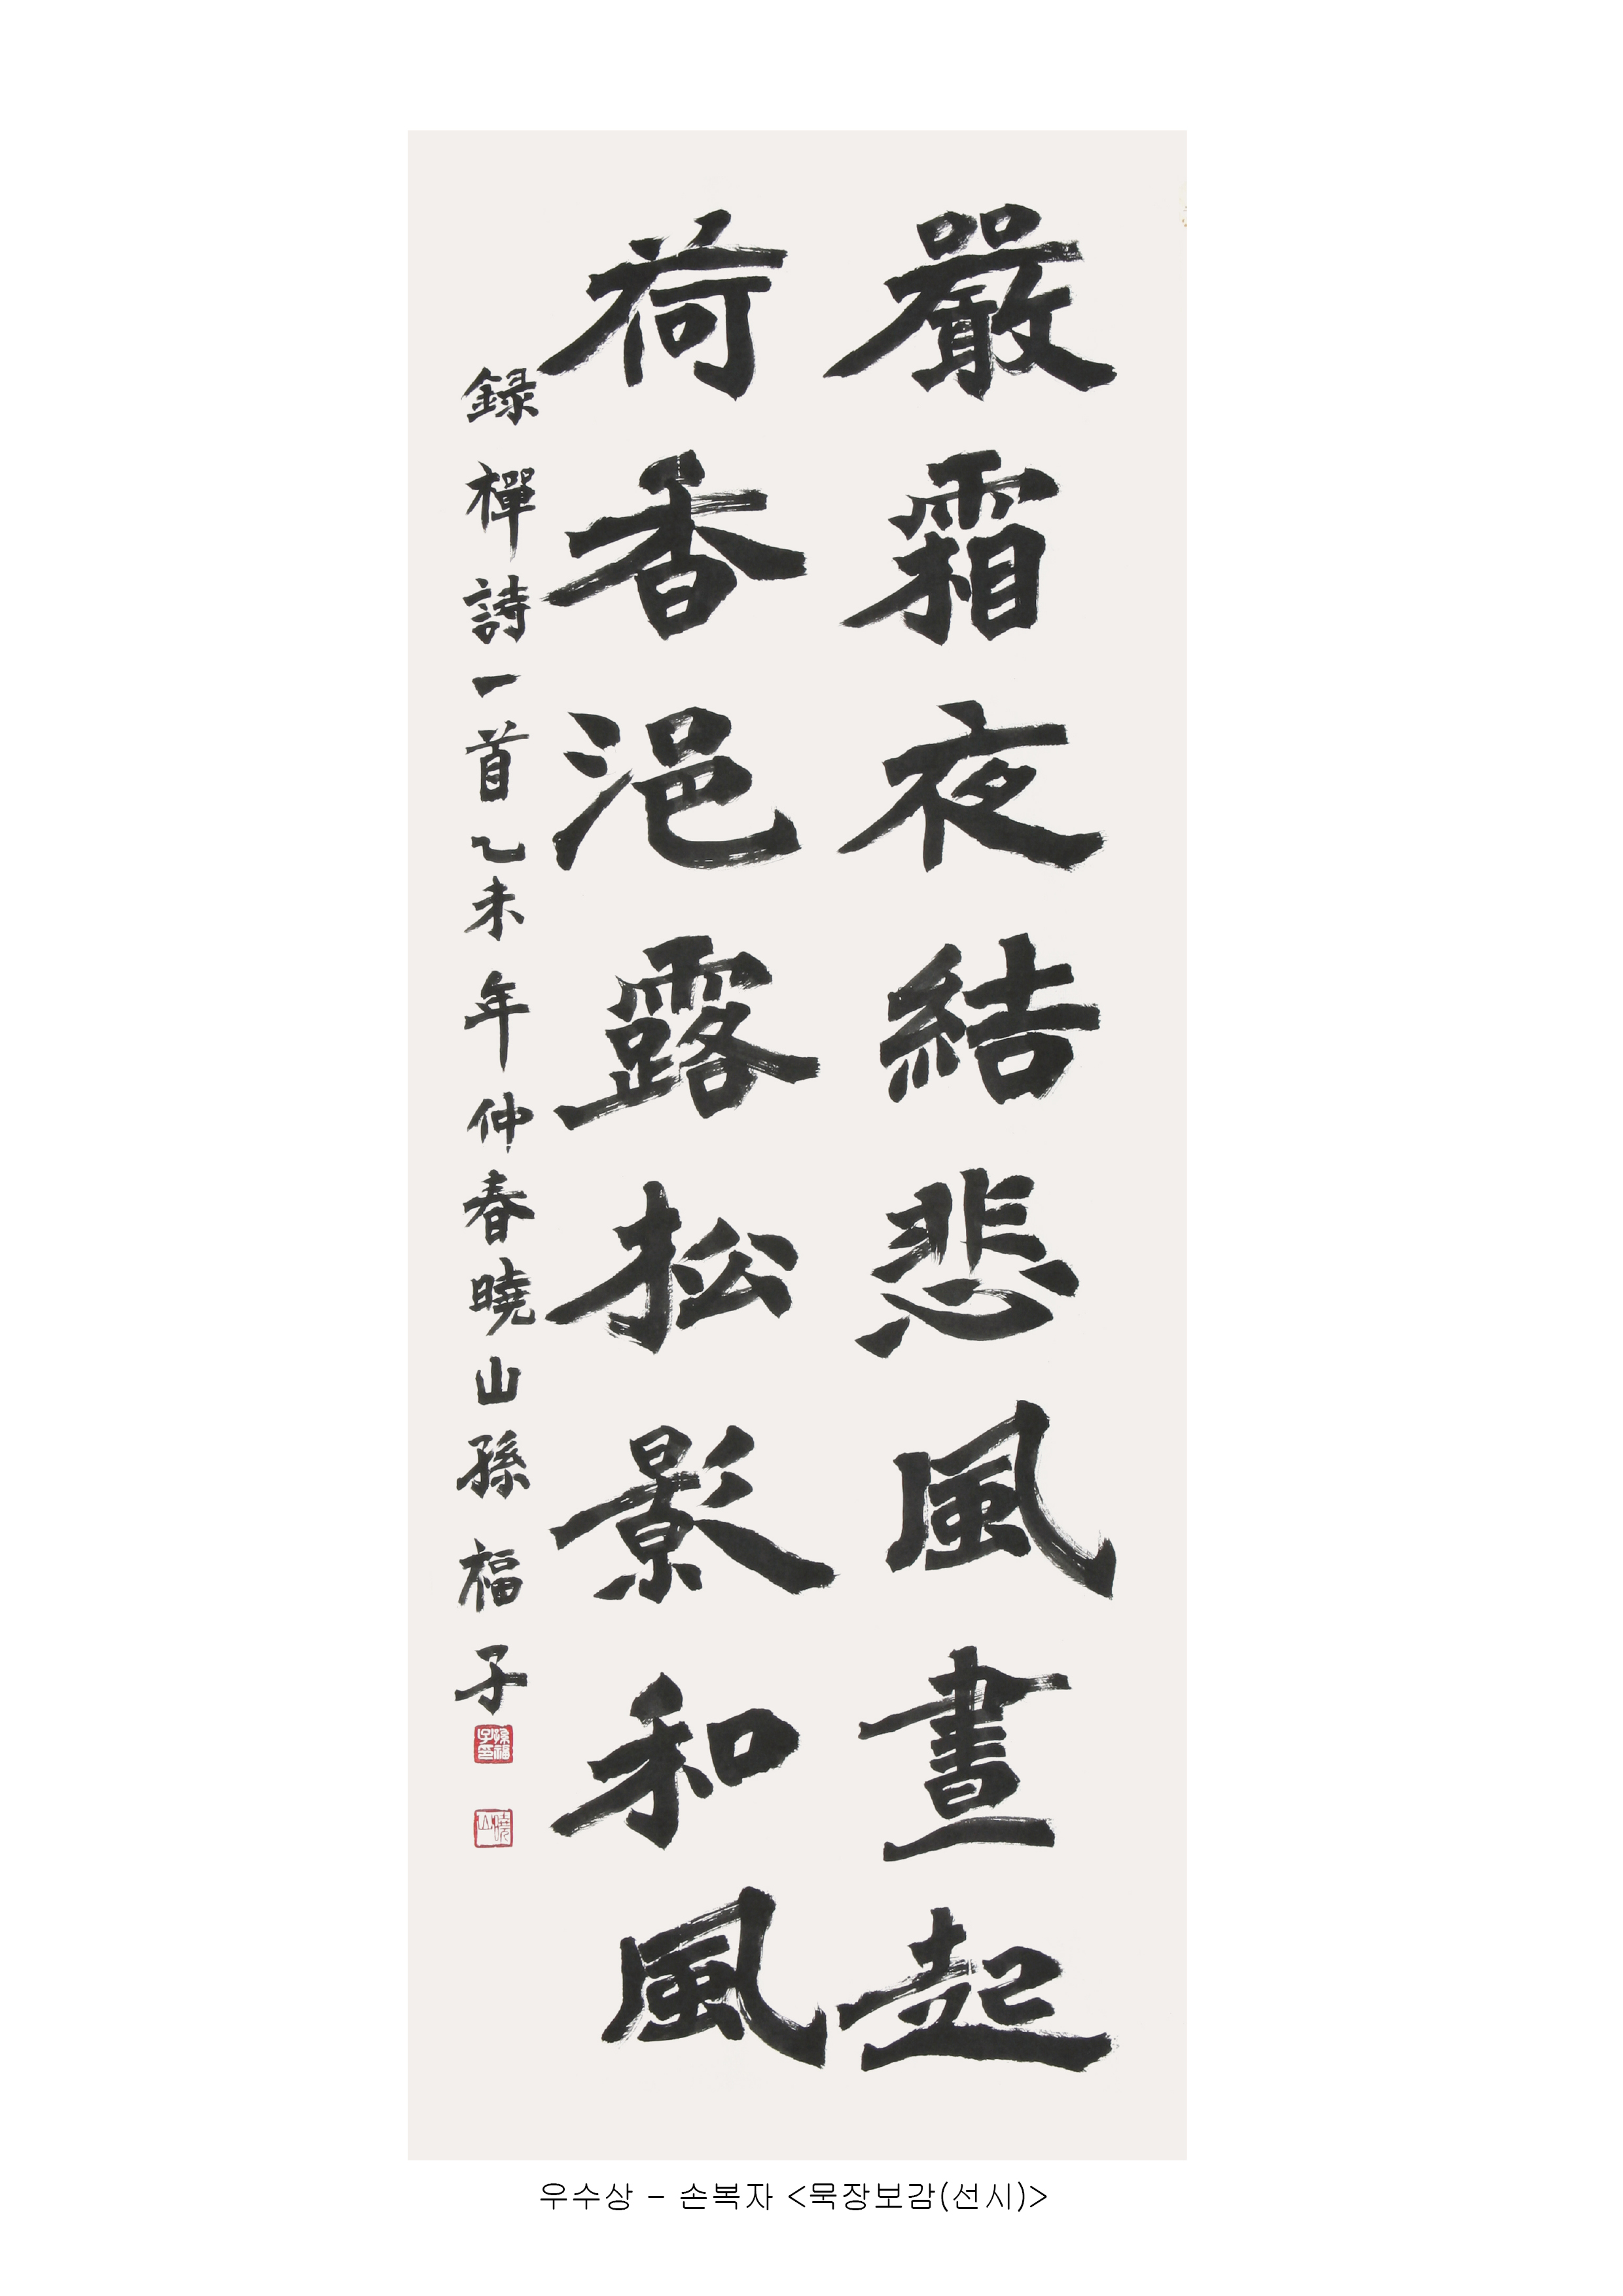 嚴霜夜結悲風晝起
荷香浥露松影和風
録禪詩一首乙未年仲春曉山孫福子
孫福子印
曉山
우수상 - 손복자 <묵장보감(선시)>